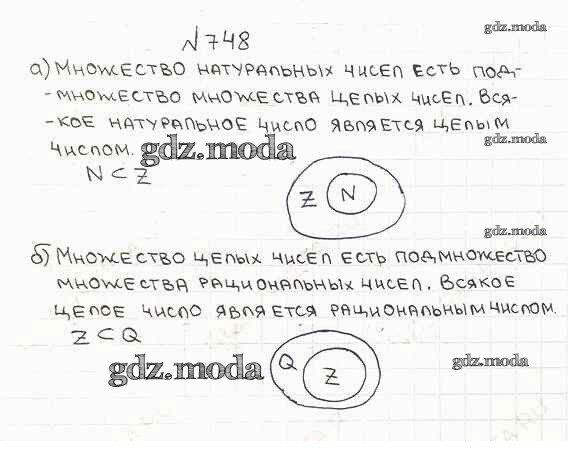 №748
gdz.moda
а) Множество натуральных чисел есть под-
gdz.moda
-множество множества целых чисел. Вся-
-кое натуральное число является целым
gdz.moda
числом. gdz.moda
N ⊂ Z
Z N
gdz.moda
б) Множество целых чисел есть подмножество
множества рациональных чисел. Всякое
целое число является рациональным числом.
Z ⊂ Q
Q Z
gdz.moda gdz.moda